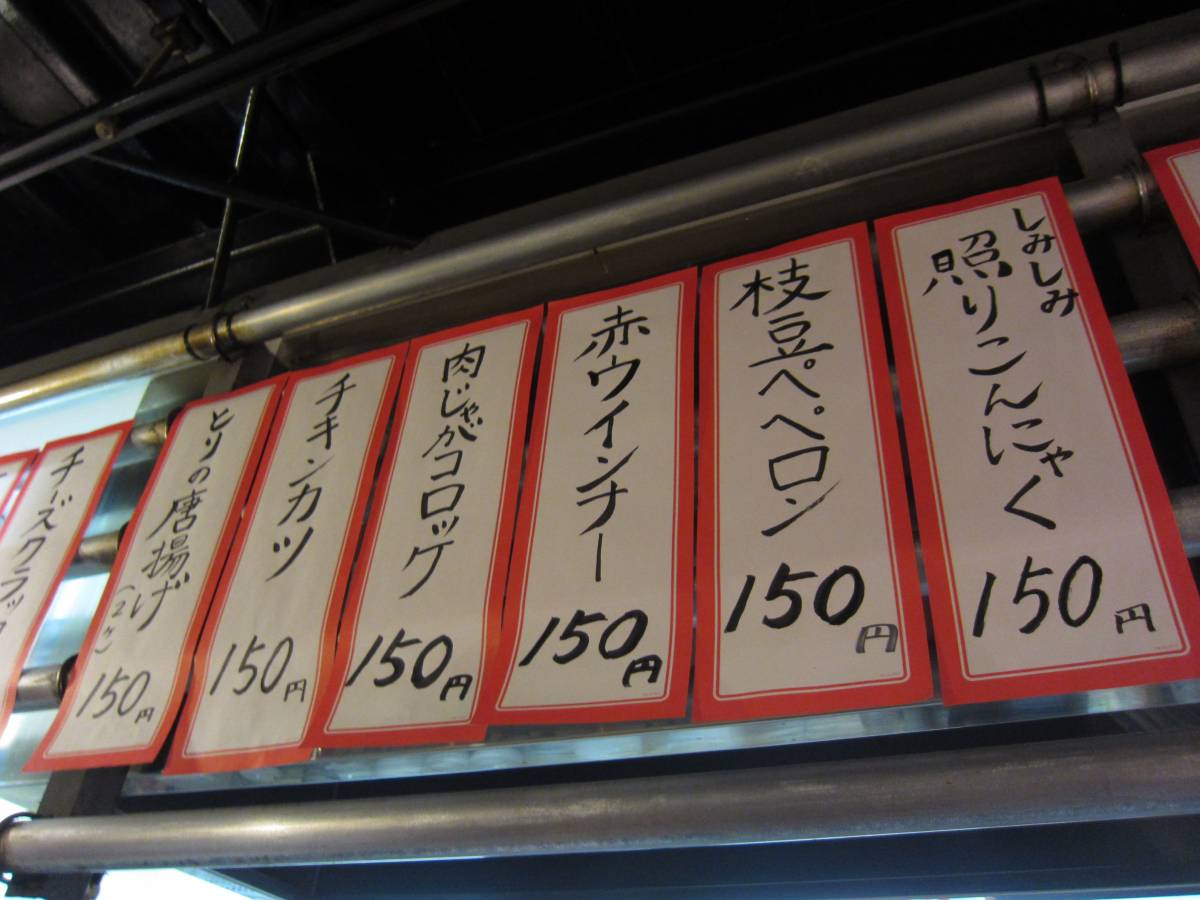 しみしみ
照りこんにゃく
150円
枝豆ペペロン
150円
赤ウインナー
150円
肉じゃがコロッケ
150円
チキンカツ
150円
とりの唐揚げ
(2ケ)
150円
チーズクラッ